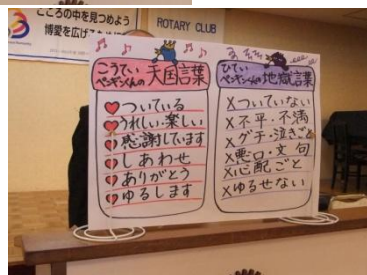 こころの中を見つめよう
博愛を広げるために
ROTARY CLUB
こうてい
ペンギンくんの天国言葉
♥ついている
♥うれしい・楽しい
♥感謝しています
♥しあわせ
♥ありがとう
♥ゆるします
ひてい
ペンギンくんの地獄言葉
×ついていない
×不平・不満
×グチ・泣きごと
×悪口・文句
×心配ごと
×ゆるせない